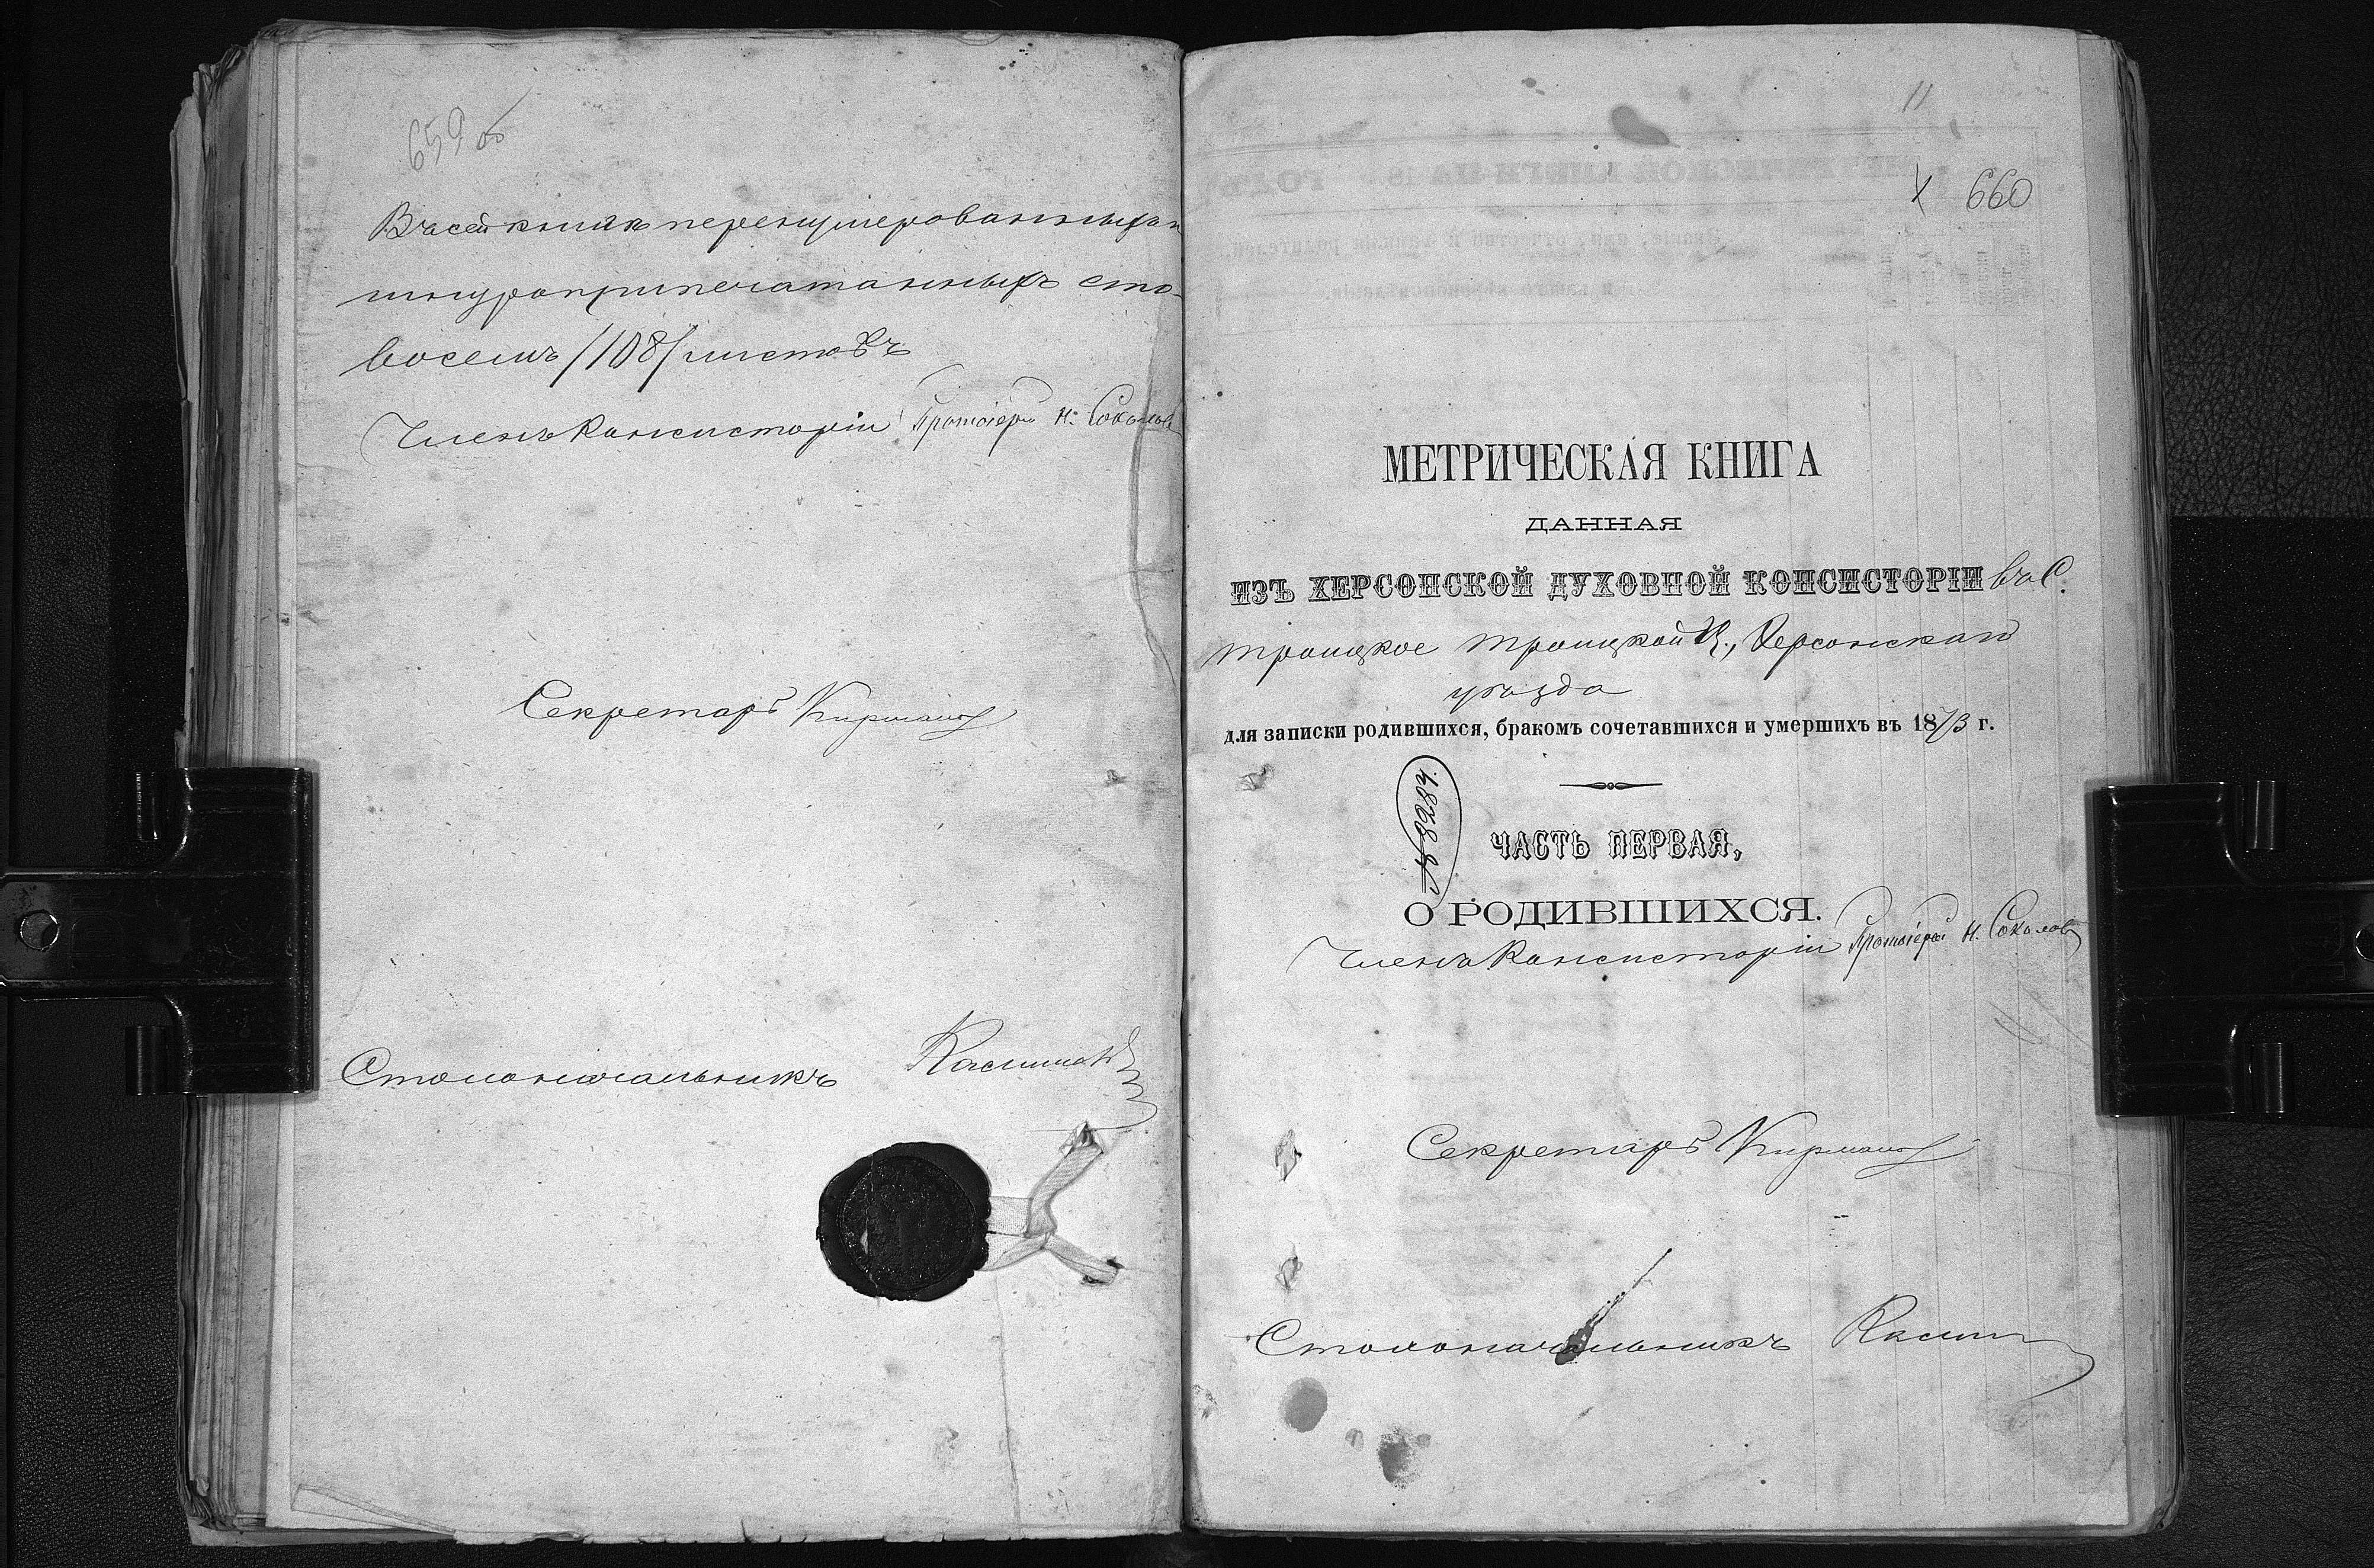 659 об
Въ сей книгѣ перенумерованныхъ и
шнуроприпечатанныхъ сто
восемь /108/ листовъ
Членъ Консисторіи Протоіерей Н. Соколовъ
Секретарь
Столоначальникъ
11
660
МЕТРИЧЕСКАЯ КНИГА
ДАННАЯ
ИЗЪ ХЕРСОНСКОЙ ДУХОВНОЙ КОНСИСТОРІИ въ С.
Троицкое Троицкой Ц., Херсонскаго
уѣзда
для записки родившихся, бракомъ сочетавшихся и умершихъ въ 1873 г.
№ 8284.
ЧАСТЬ ПЕРВАЯ,
О РОДИВШИХСЯ.
Членъ Консисторіи Протоіерей Н. Соколовъ
Секретарь
Столоначальникъ